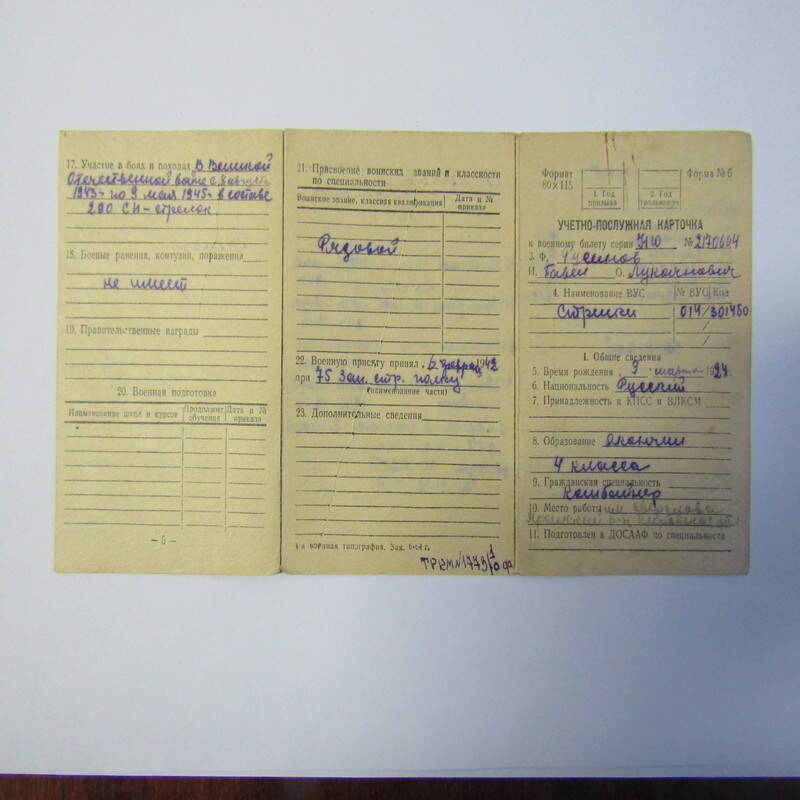 17. Участие в боях и походах В Великой
Отечественной войне с 8 августа
1943г по 9 мая 1945г в составе
290 СП - стрелок
18. Боевые ранения, контузии, поражения
не имеет
19. Правительственные награды
20. Военная подготовка
Наименование школ и курсов
Продолжит. обучения
Дата и № приказа
— 5 —
21. Присвоение воинских званий и классности
по специальности
Воинское звание, классная квалификация
Дата и № приказа
Рядовой
22. Военную присягу принял 6 1942
при 75 Зап. стр. полку
(наименование части)
23. Дополнительные сведения
4-я военная типография. Зак.
ТРКМ №1779/1 О.Ф.
Формат
80×115
1. Год призыва
2. Год увольнения
Форма № 6
УЧЕТНО-ПОСЛУЖНАЯ КАРТОЧКА
к военному билету серии НЮ № 2170604
3. Ф.
И. Павел О. Лукьянович
4. Наименование ВУС
№ ВУС
Код
Стрелки 014/301450
I. Общие сведения
5. Время рождения 9 марта 1924.
6. Национальность Русский
7. Принадлежность к КПСС и ВЛКСМ
8. Образование Окончил
4 класса
9. Гражданская специальность
Комбайнер
10. Место работы им.
11. Подготовлен в ДОСААФ по специальности